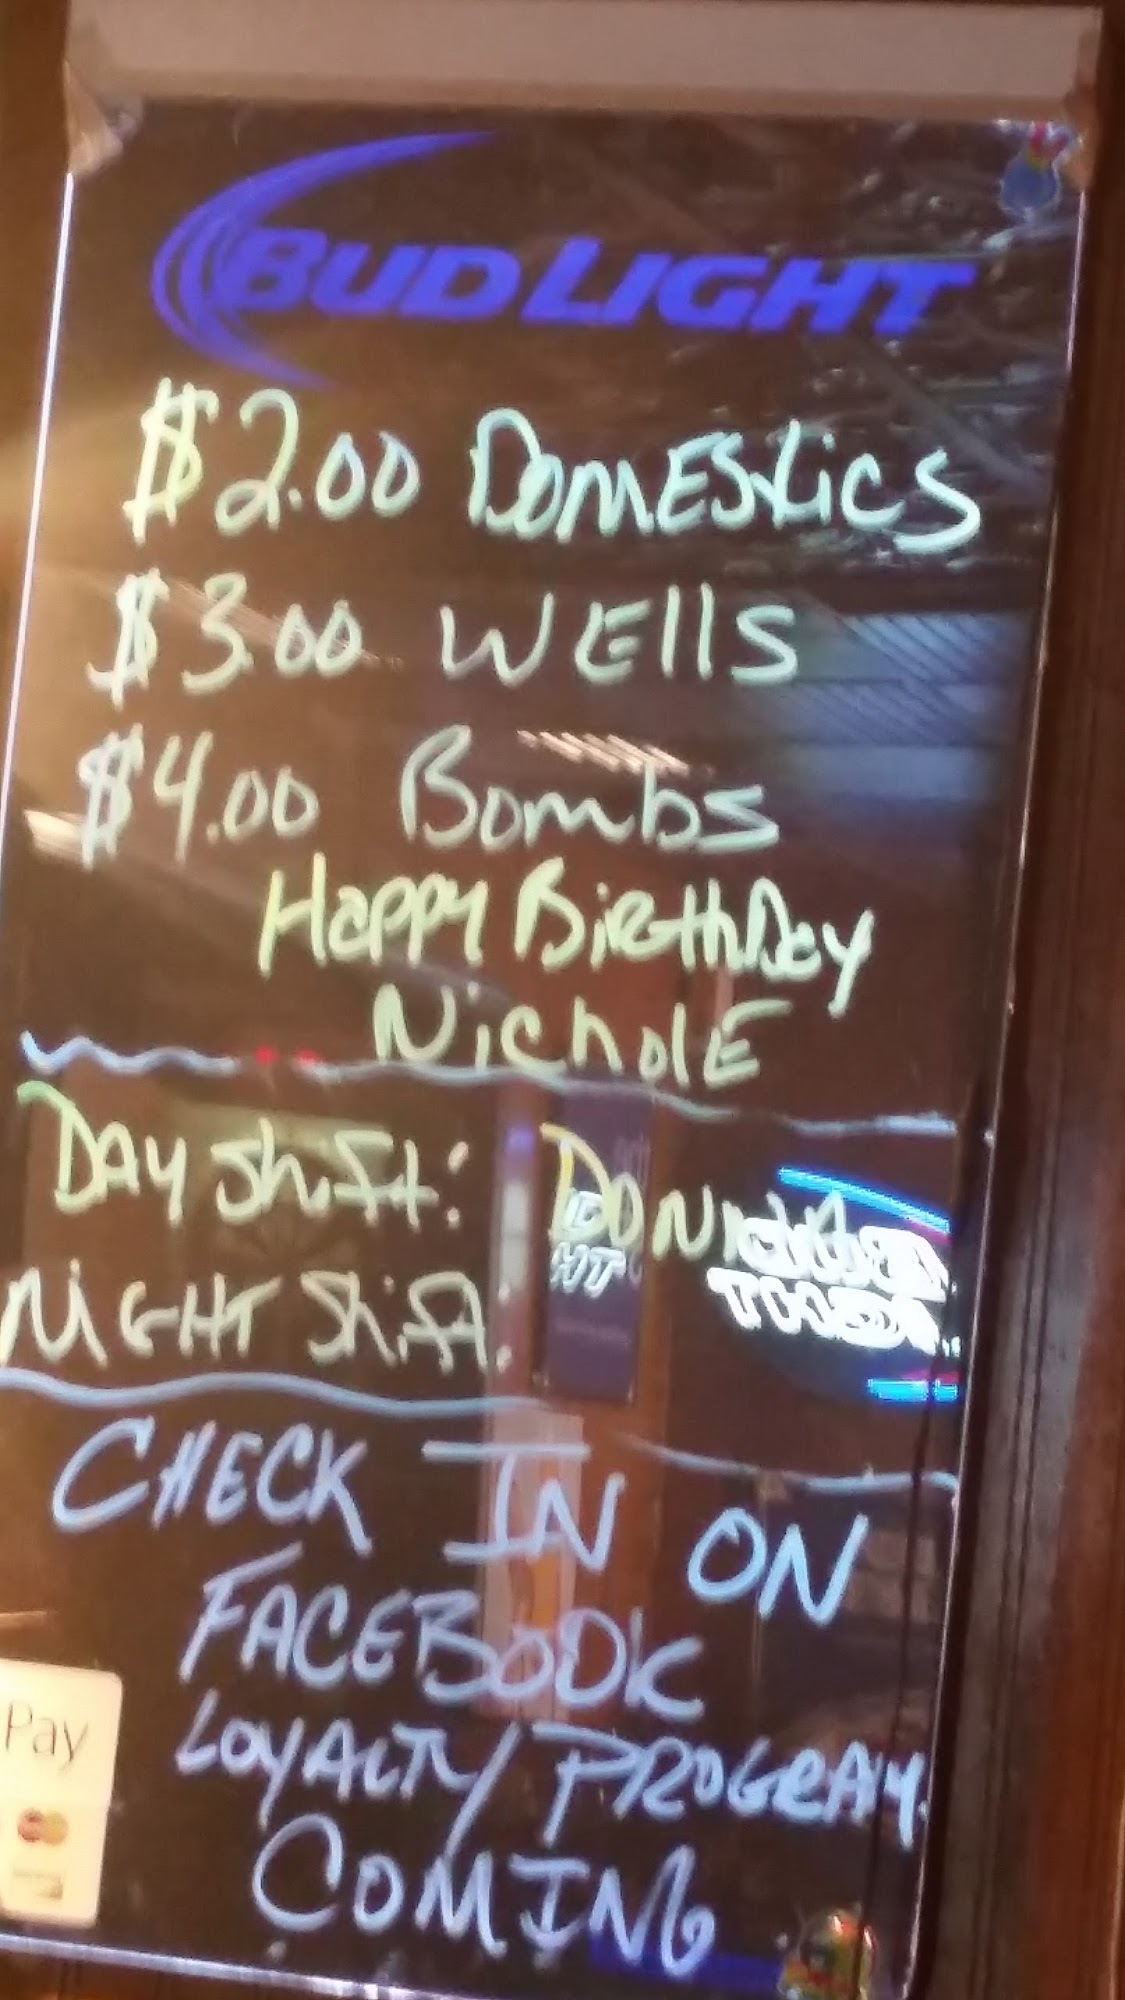 BUD LIGHT
$2.00 DOMEStiCS
$3.00 WEllS
$4.00 Bombs
HAPPY BiRthDAy
NichOlE
DAY Shift:
NiGHT Shift:
CHECK IN ON
FACEBOOK
LOYALTY PROGRAM
COMING
Pay